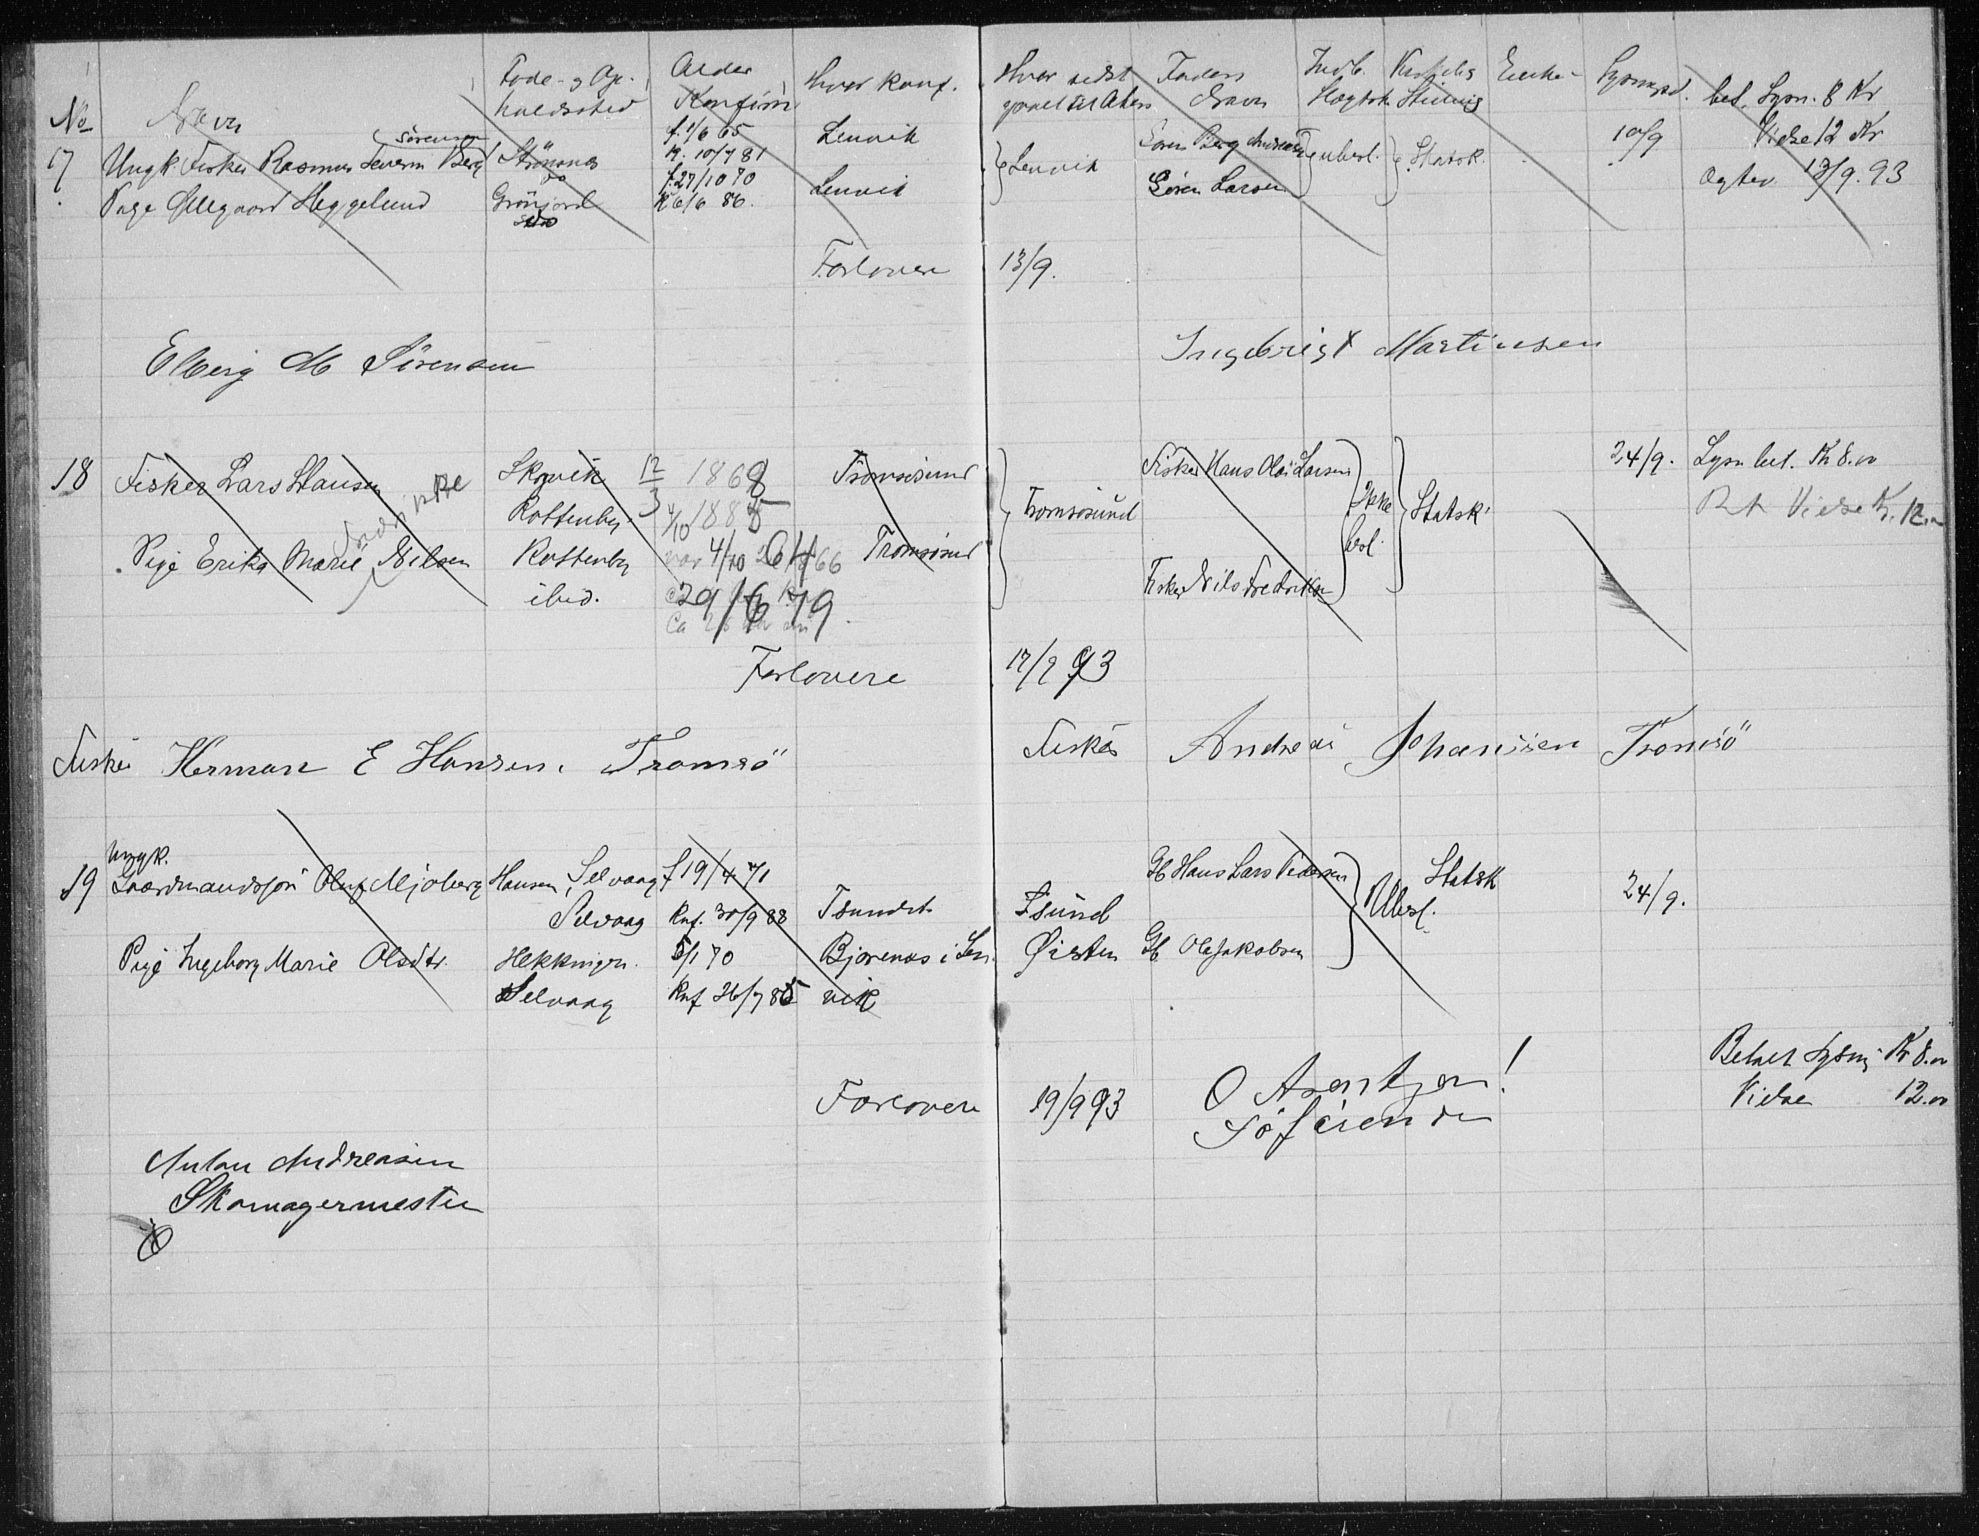 No Navn Føde- og Op- Alder Hvor konf. Hvor sidst Faders Indb. Kirkelig Enke- Lysningsd. bet. Lysn. 8 Kr
holdssted Konfirm. gaaet til Alters Navn Slægtsk Stilling Vielse 12 Kr
Sørensen f. 1/6 65 Lenvik 10/9
17 Ungk. Fisker Rasmus Severin Berg Strömnes K. 10/7 81 Lenvik Sören Berg Andreas ubesl. Statsk. Ægtev 13/9. 93
do f. 27/10 70
Pige Ellegaard Heggelund Grönjord K 6/6 86. Lenvik Sören Larsen
Forlovere 13/9.
Elberg M Sörensen Ingebrigt Martinsen
18 Fisker Lars Hansen Skavik 12/3 1868 Tromsösund Fisker Hans Olai Larsen Ikke Statsk. 24/9. Lysn bet. Kr 8.00
Rottenby. 4/10 1885 Tromsösund besl. Vielse Kr. 12.00
Pige Erika Marie Nilsen Rottenby 4/10 66 Tromsösund
ibid. 29/6 79. Fisker Nils Fredriksen
Forlovere 17/9 93
Fisker Herman E Hansen. Tromsö Fisker Andreas Johansen Tromsö
Ungk.
19 Gaardmandssön Oluf Mjoberg Hansen, Selvaag f 19/4 71 Gb Hans Lars Pedersen Statsk
Selvaag Knf. 30/9 88 Tsundet Tsund Ubesl. 24/9.
Pige Ingeborg Marie Olsdtr. Hekkingen. 5/1 70 Bjorenas i Len Øisten Gb Ole Jakobsen
Selvaag Knf 26/7 85 vik
Betalt Lysning Kr 8.00
Forlovere 19/9 93 O Arentzen! Vielse 12.00
Anton Andreasen
Skomagermester